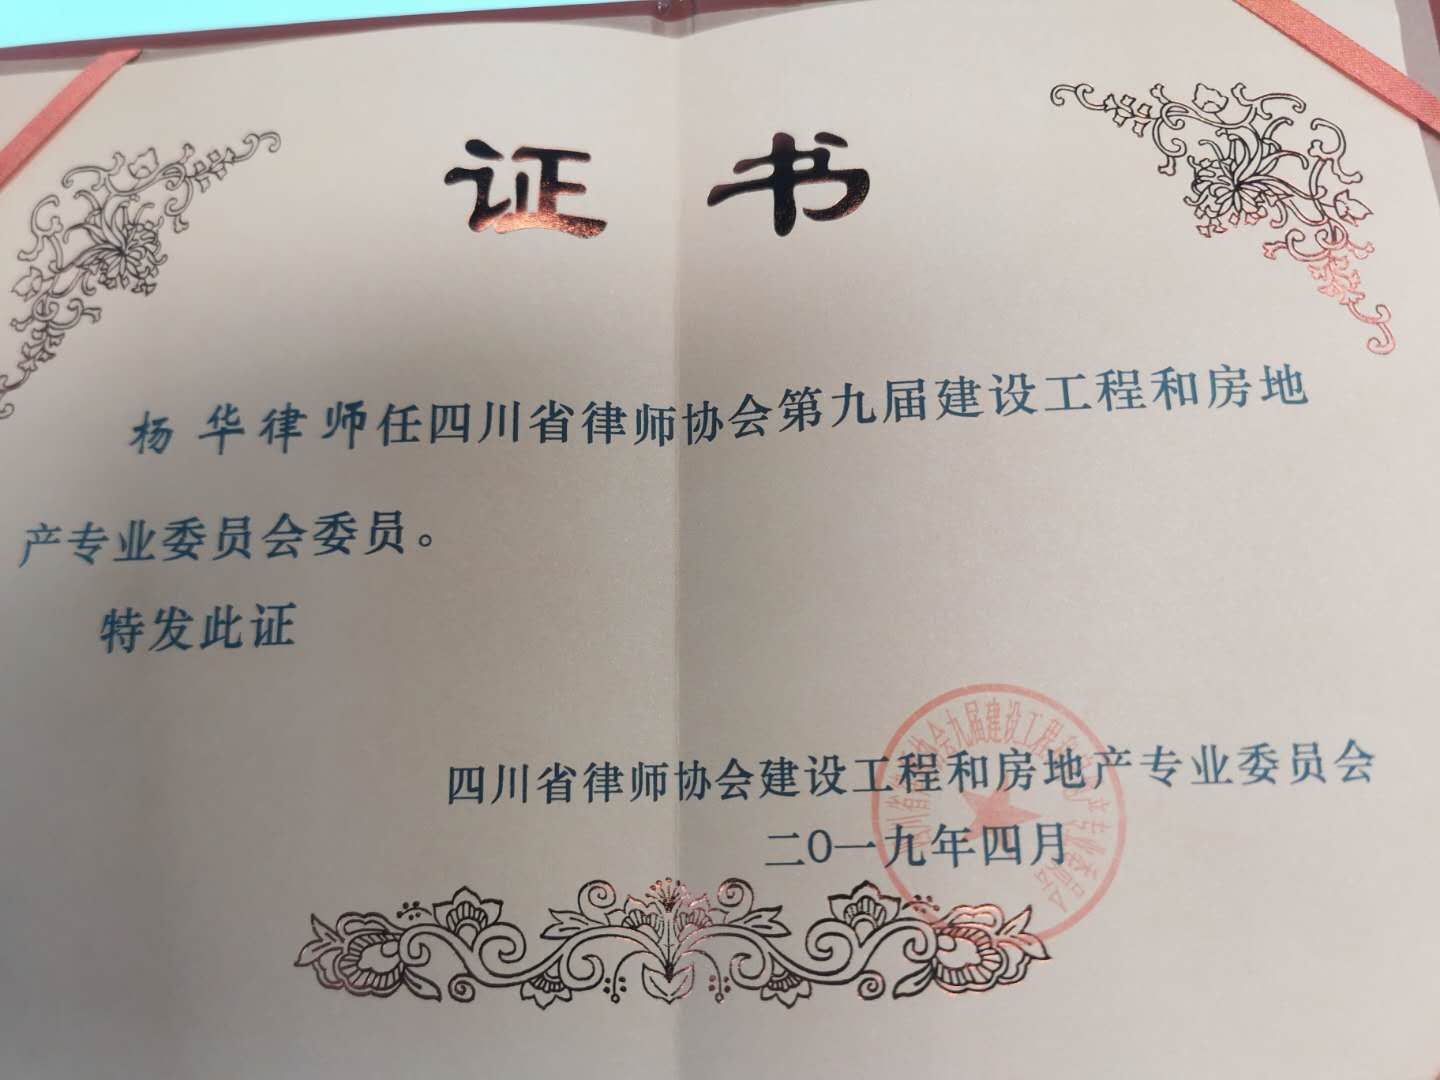 证书
杨华律师任四川省律师协会第九届建设工程和房地
产专业委员会委员。
特发此证
四川省律师协会建设工程和房地产专业委员会
二0一九年四月